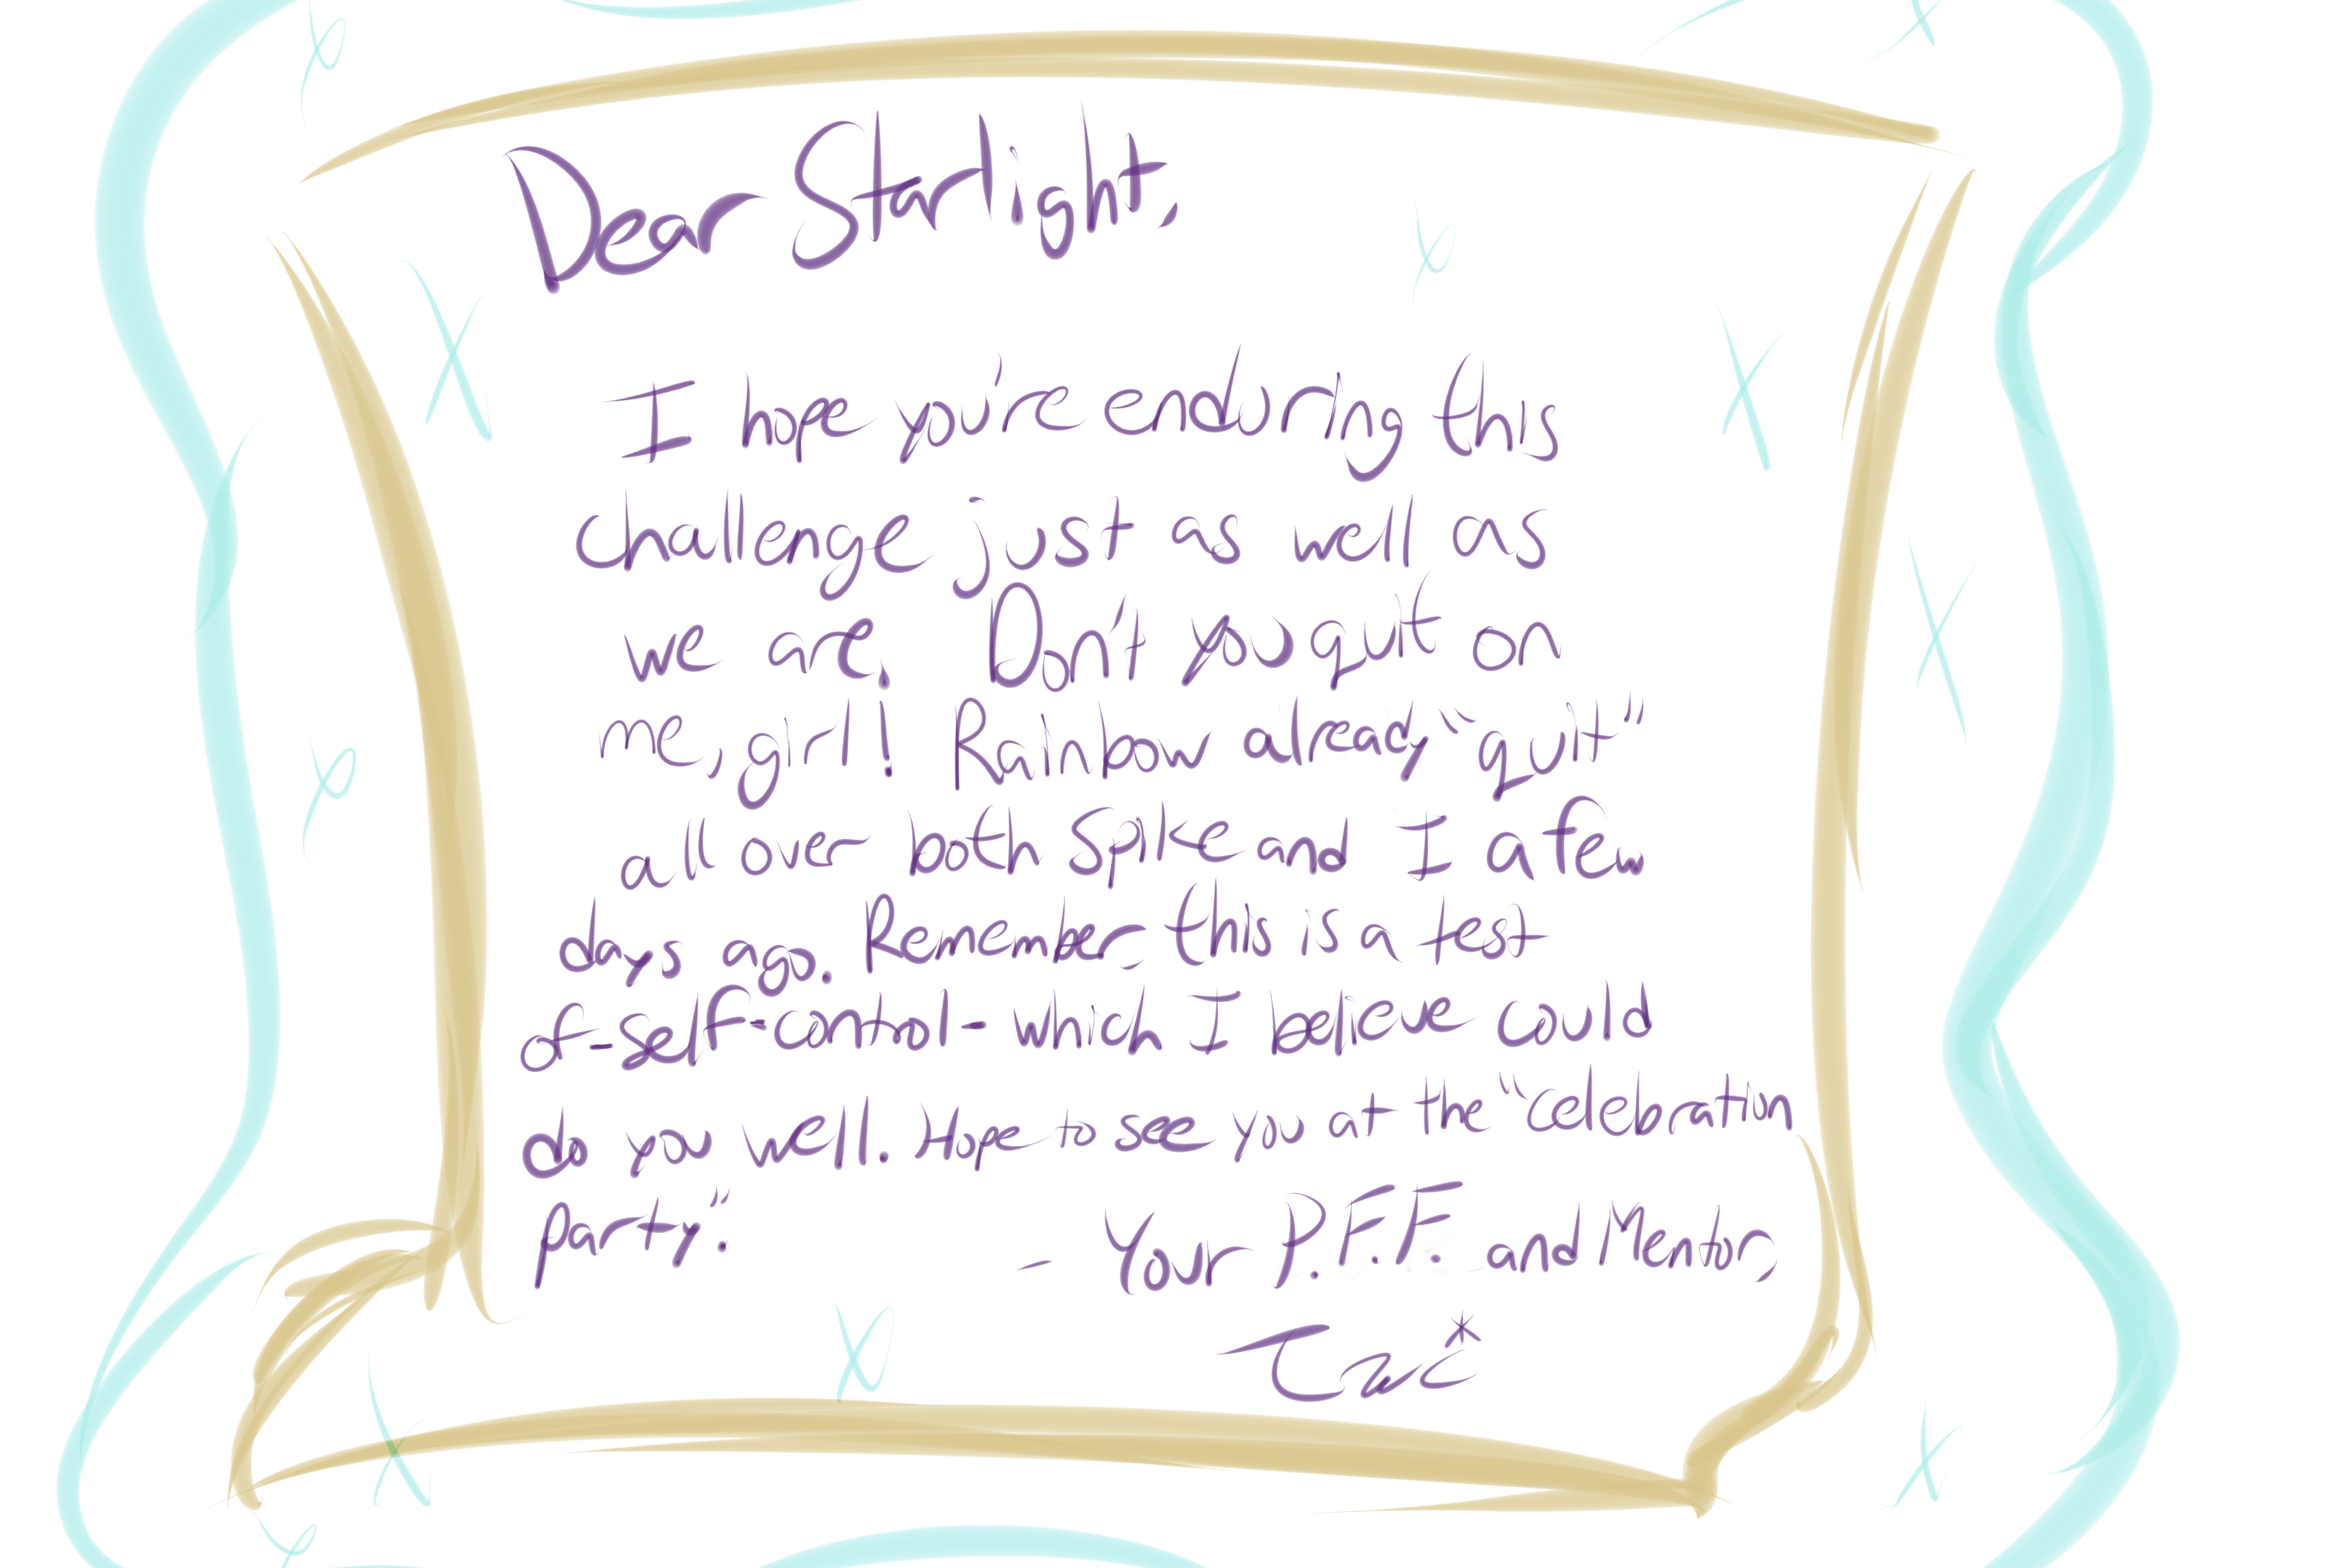 Dear Starlight,
I hope you're enduring this
challenge just as well as
we are. Don't you quit on
me, girl! Rainbow already "quit"
all over both Spike and I a few
days ago. Remember this is a test
of-self-control-which I believe could
do you well. Hope to see you at the "celebration
party."
- Your P.F.F. and Mentor,